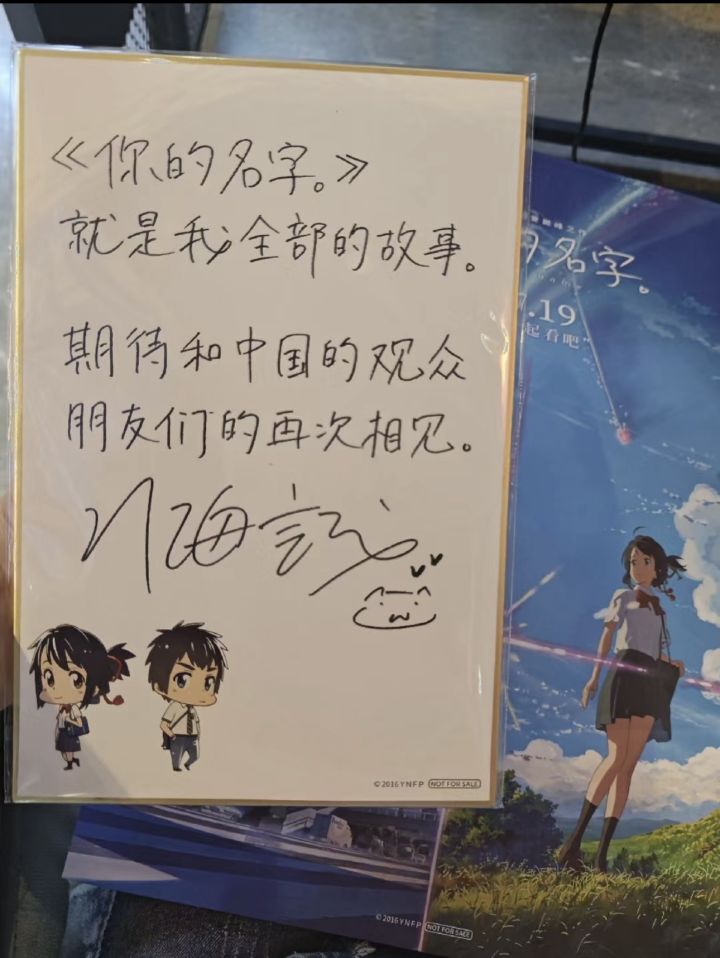 《你的名字。》
就是我全部的故事。
期待和中国的观众
朋友们的再次相见。
©2016 YNFP NOT FOR SALE
的名字。
7.19
起看吧"
©2016 YNFP NOT FOR SALE